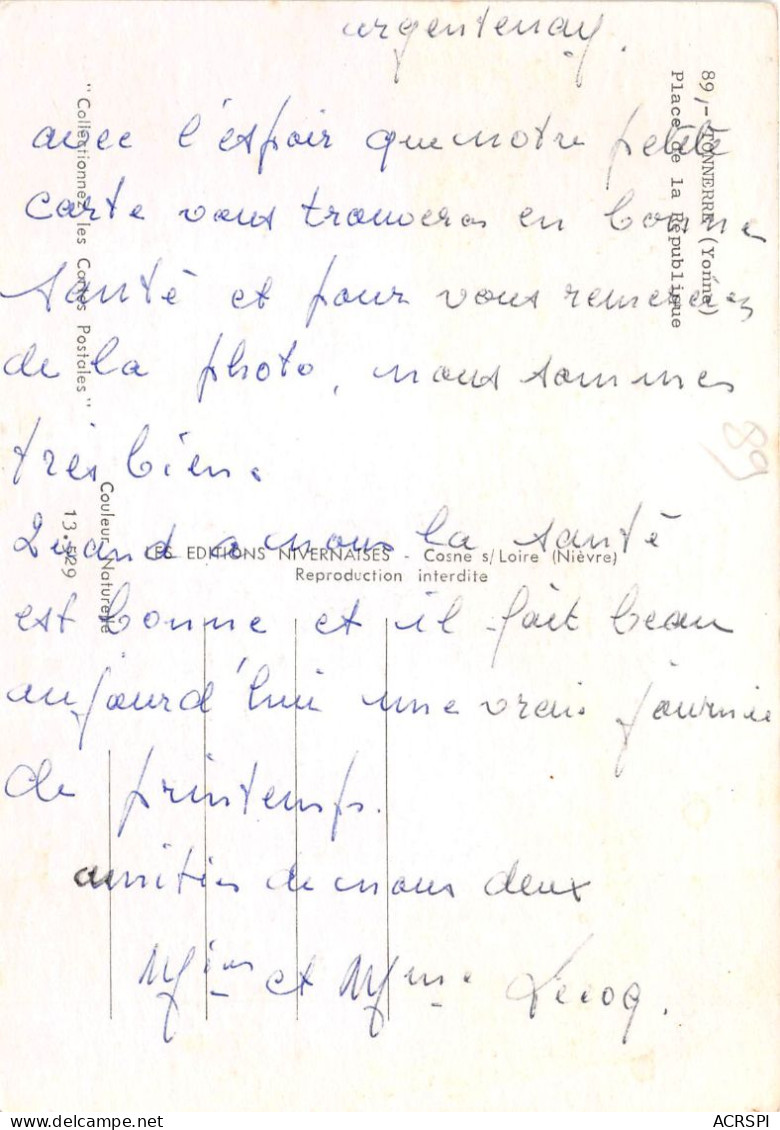 argentenay.
avec l'espoir que notre petite
carte vous trouveras en bonne
santé et pour vous remercier
de la photo, nous sommes
très bien.
Quand a nous la santé
est bonne et il fait beau
aujourd'hui une vrais journée
de printemps.
amitiés de nous deux
et Mme Lecoq.
89,- TONNERRE (Yonne)
Place de la République
89
"Collectionnez les Cartes Postales"
Couleur Naturelle
LES EDITIONS NIVERNAISES - Cosne s/Loire (Nièvre)
Reproduction interdite
ACRSPI